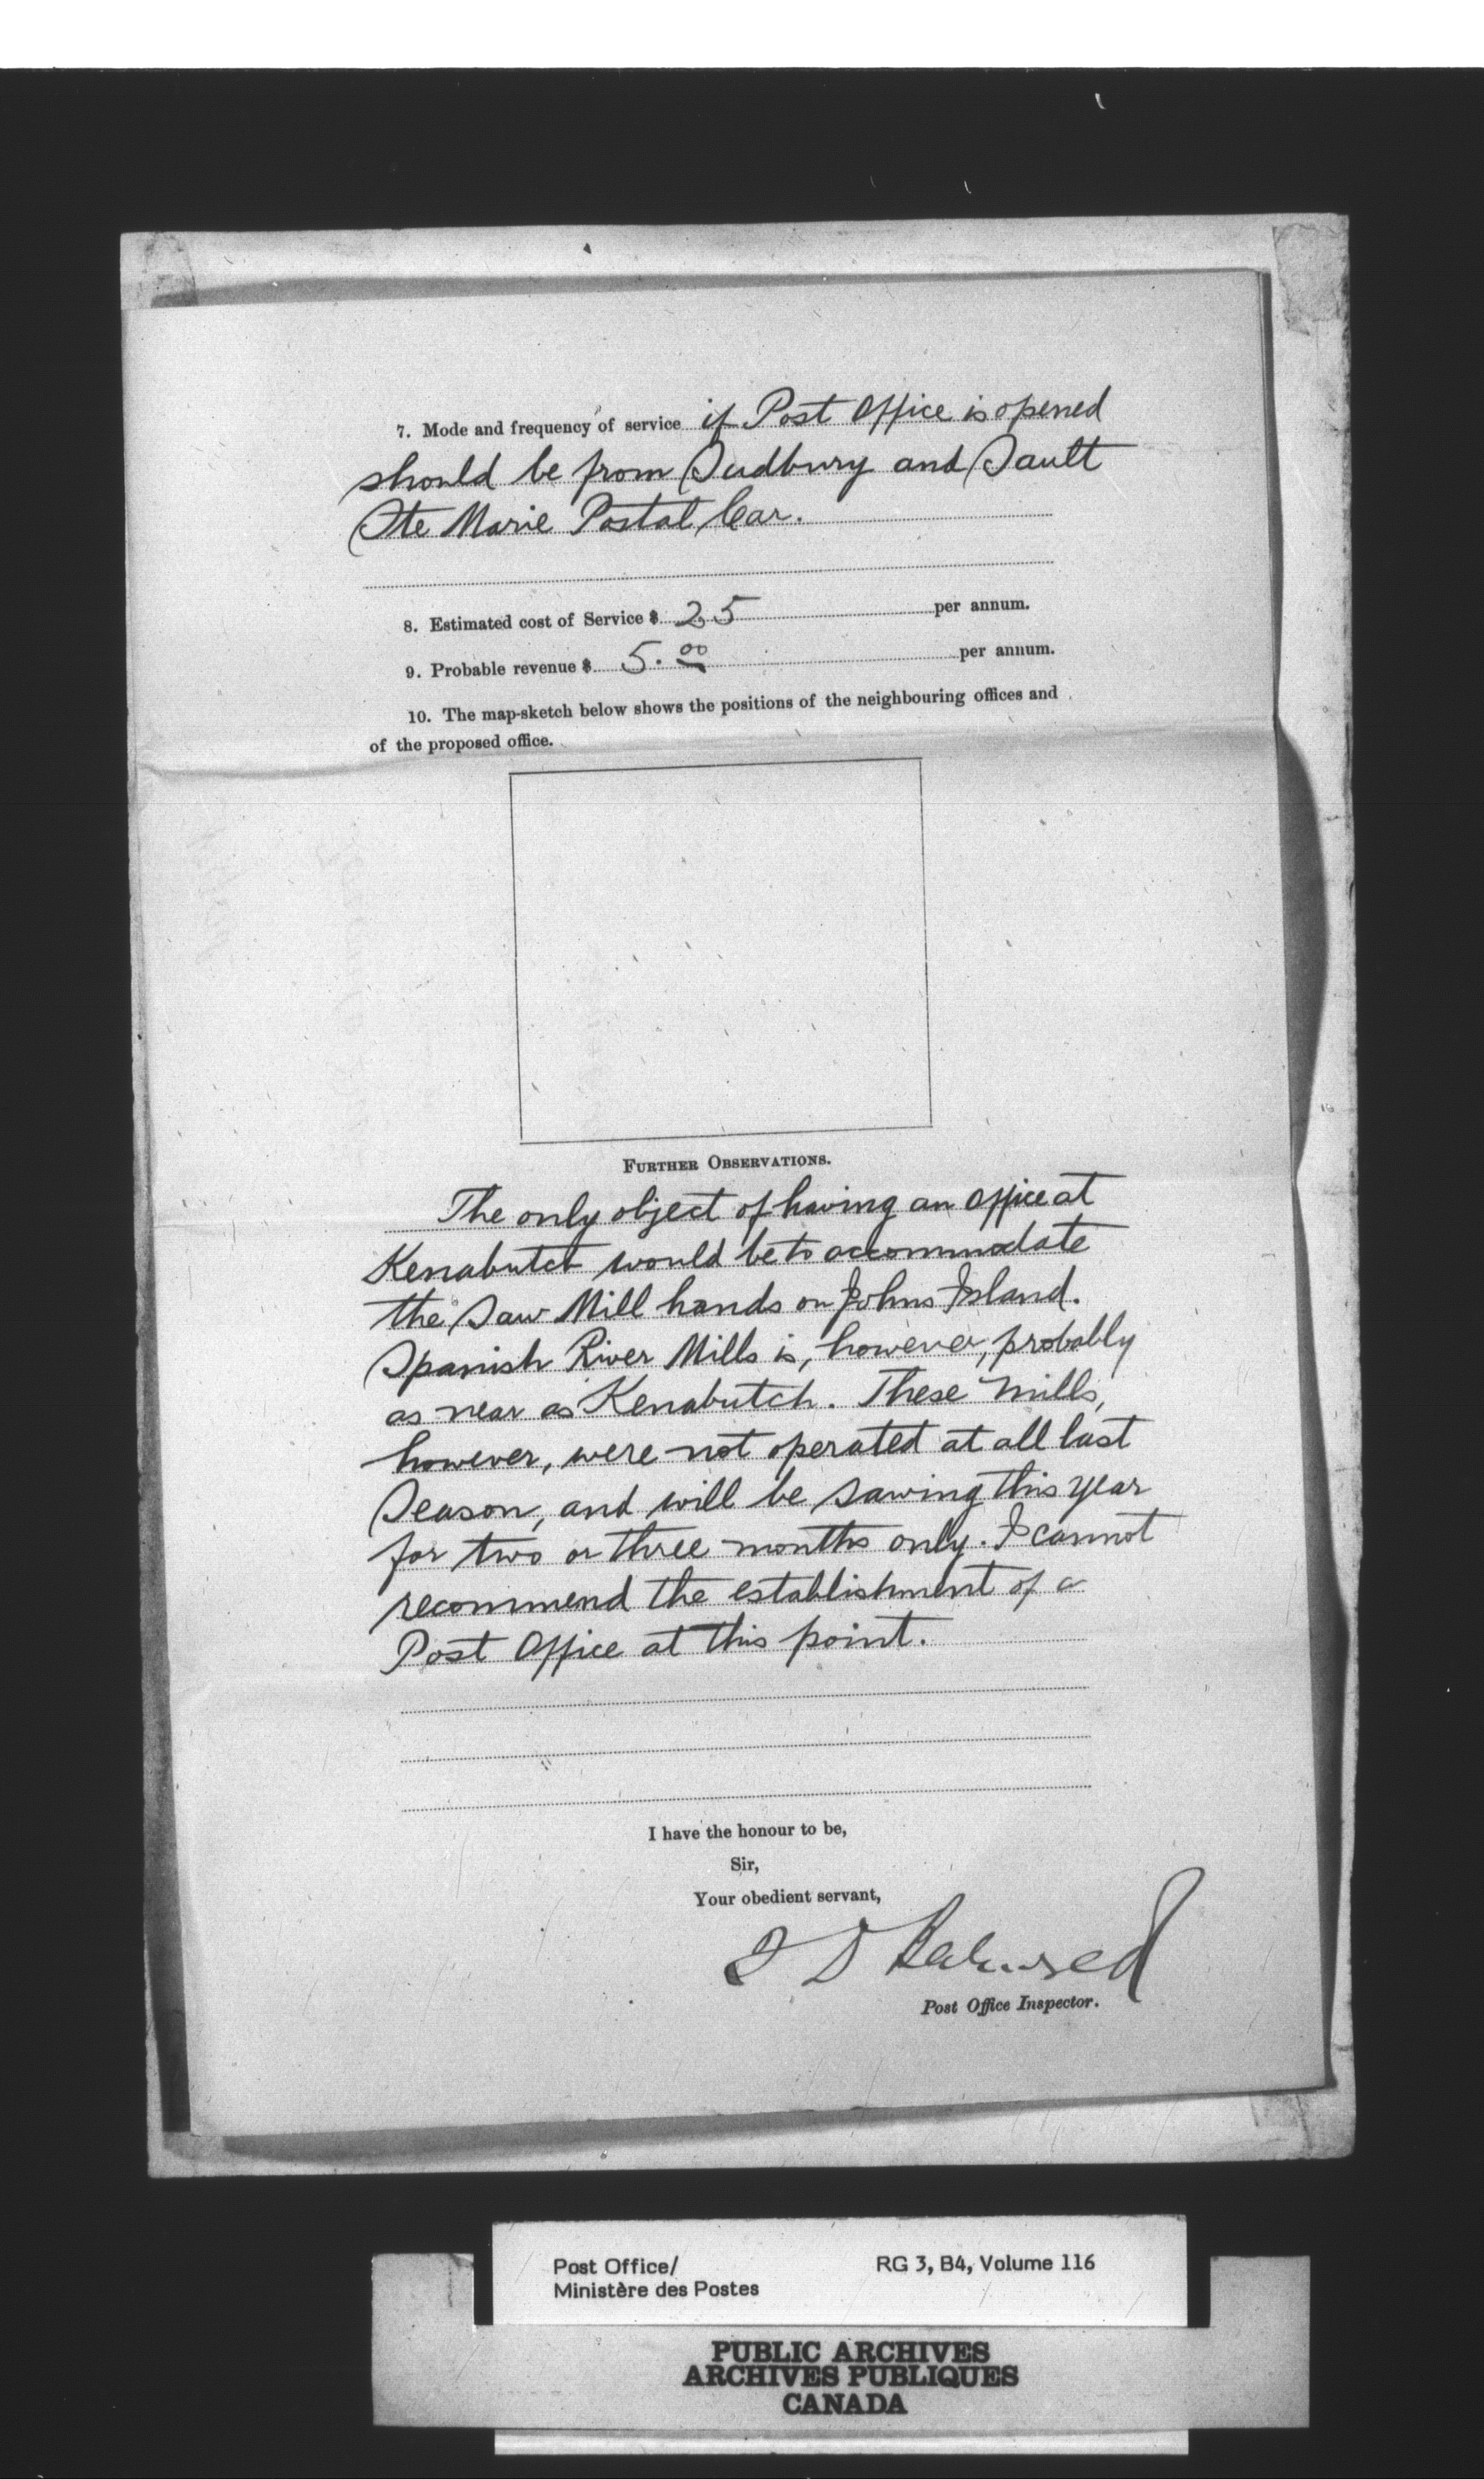 7. Mode and frequency of service if Post Office is opened
should be from Sudbury and Sault
Ste Marie Postal Car.
8. Estimated cost of Service $ 25 per annum.
9. Probable revenue $ 5.00 per annum.
10. The map-sketch below shows the positions of the neighbouring offices and
of the proposed office.
FURTHER OBSERVATIONS.
The only object of having an office at
Kenabutch would be to accommodate
the Saw Mill hands on Johns Island.
Spanish River Mills is, however, probably
as near as Kenabutch. These mills,
however, were not operated at all last
Season, and will be sawing this year
for two or three months only. I cannot
recommend the establishment of a
Post Office at this point.
I have the honour to be,
Sir,
Your obedient servant,
Post Office Inspector.
Post Office/ RG 3, B4, Volume 116
Ministère des Postes
PUBLIC ARCHIVES
ARCHIVES PUBLIQUES
CANADA